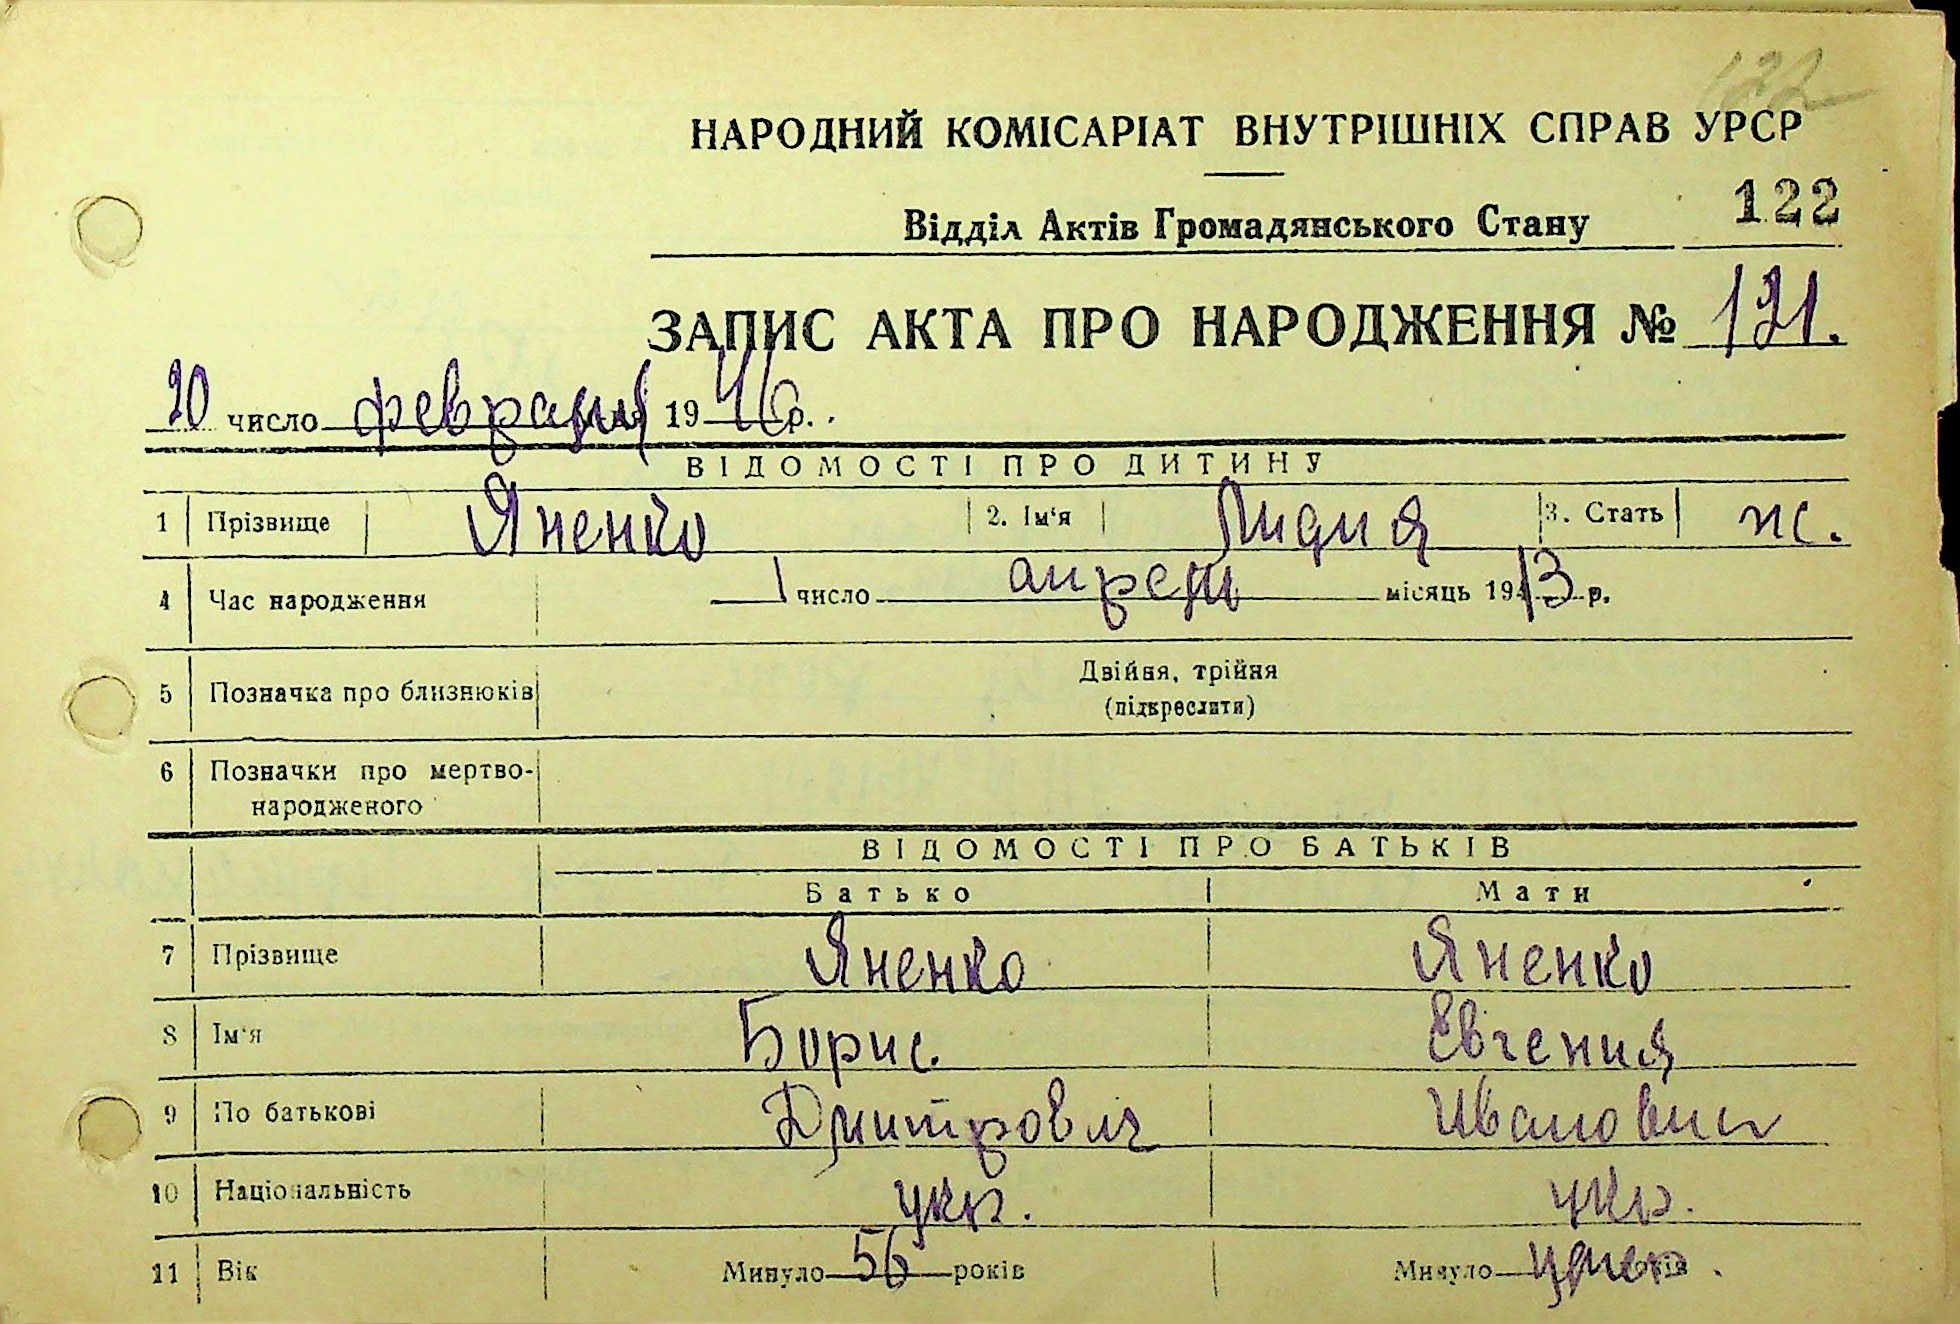 122
НАРОДНИЙ КОМІСАРІАТ ВНУТРІШНІХ СПРАВ УРСР
Відділ Актів Громадянського Стану 122
ЗАПИС АКТА ПРО НАРОДЖЕННЯ № 121.
20 число февраля 1946 р.
ВІДОМОСТІ ПРО ДИТИНУ
1 Прізвище Яненко 2. Ім'я Лидия 3. Стать ж.
4 Час народження 1 число апрель місяць 1913 р.
5 Позначка про близнюків Двійня, трійня
(підкреслити)
6 Позначки про мертво-
народженого
ВІДОМОСТІ ПРО БАТЬКІВ
Батько Мати
7 Прізвище Яненко Яненко
8 Ім'я Борис. Евгения
9 По батькові Дмитрович Ивановна
10 Національність укр. укр.
11 Вік Минуло 56 років Минуло умер